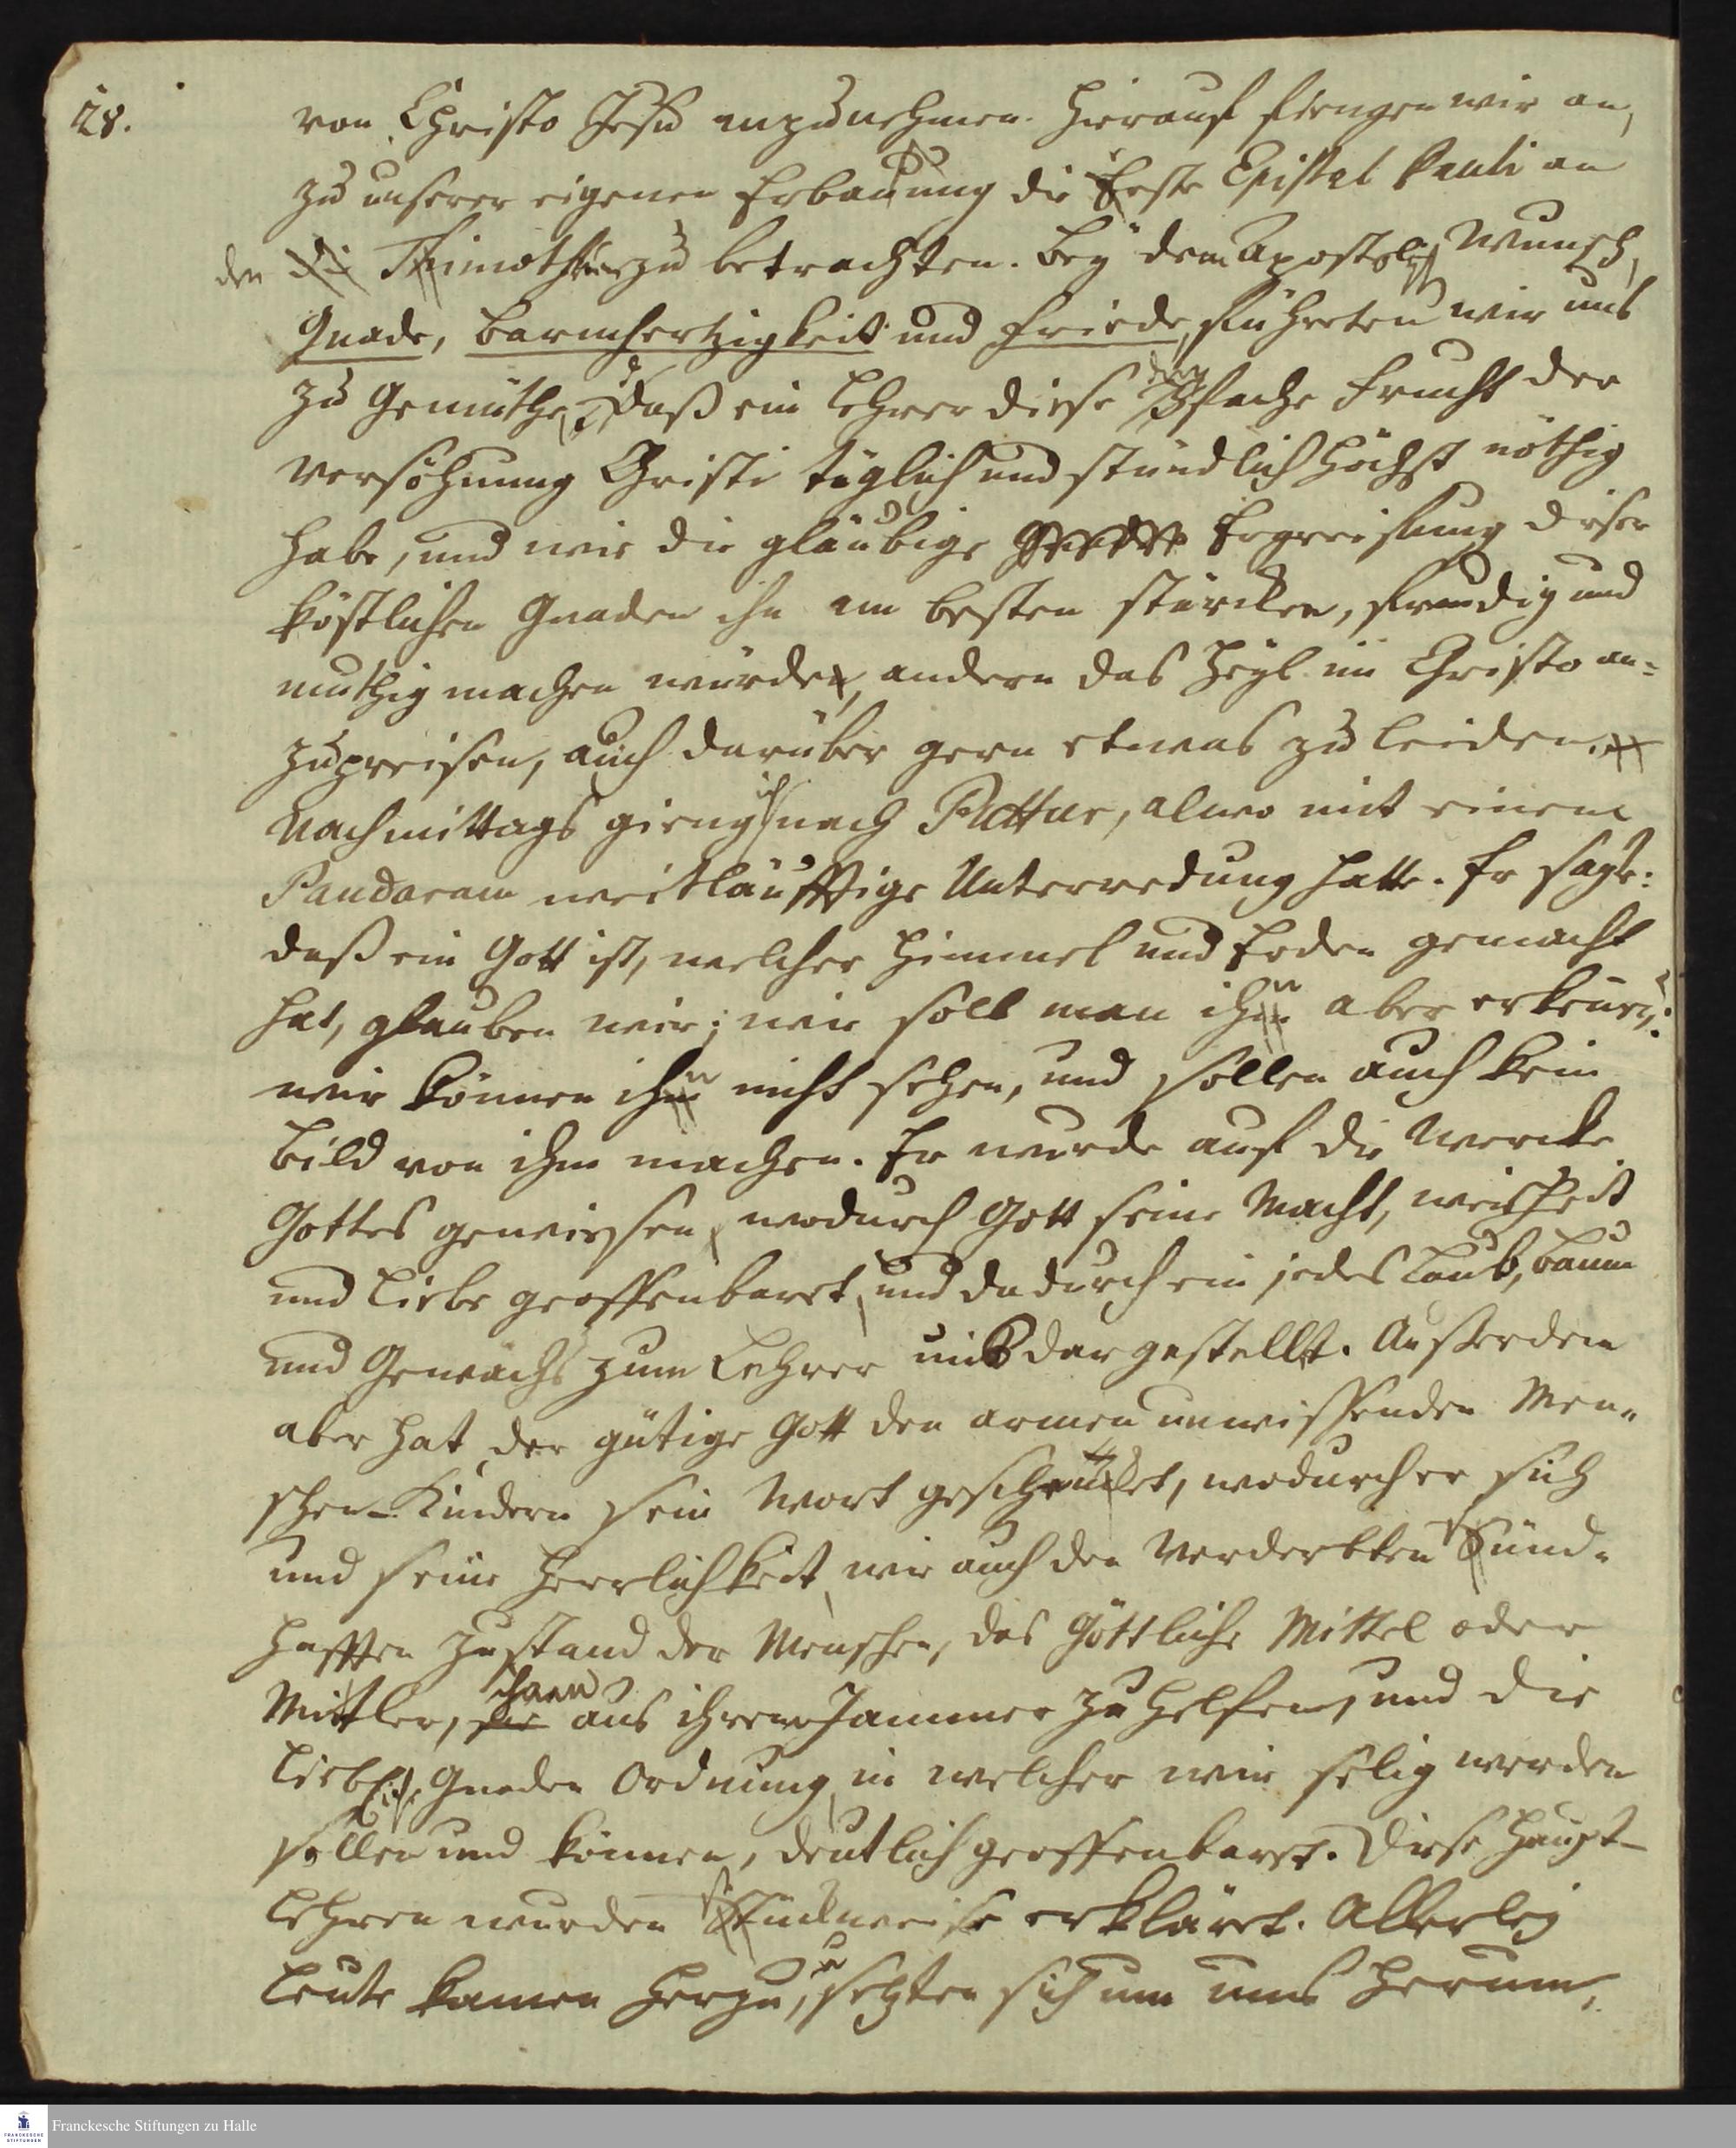 28.
von Christo Jesu anzunehmen. Hierauf fiengen wir an,
zu unserer eigenen Erbauung die Erste Epistel Pauli an
den Timoth. zu betrachten. Bey dem Apostol. Wunsch,
Gnade, Barmhertzigkeit und Friede, führeten wir uns
zu Gemüthe, daß ein Lehrer diese 3fache Frucht der
Versöhnung Christi täglich und stündlich höchst nöthig
habe, und wie die gläubige Ergreifung dieser
köstlichen Gnaden ihn am besten stärcken, freudig und
muthig machen würde, andern das Heyl in Christo an=
zupreisen, auch darüber gern etwas zu leiden.
Nachmittags gieng ich nach Puttur, alwo mit einem
Pandaram weitläufftige Unterredung hatte. Er sagte:
daß ein Gott ist, welcher Himmel und Erden gemacht
hat, glauben wir; wie soll man ihn aber erkennen?
wir können ihn nicht sehen, und sollen auch kein
Bild von ihm machen. Er wurde auf die Wercke
Gottes gewiesen, wodurch Gott seine Macht, Weisheit
und Liebe geoffenbaret, und dadurch ein jedes Laub, Baum
und Gewächs zum Lehrer uns dargestellt. Außerdem
aber hat der gütige Gott den armen unwissenden Men=
schen-Kindern sein Wort geschencket, wodurch er sich
und seine Herrlichkeit, wie auch den verderbten sünd=
hafften Zustand der Menschen, das Göttliche Mittel oder
Mittler, ihnen aus ihrem Jammer zu helfen, und die
liebl. Gnaden Ordnung, in welcher wir selig werden
sollen und können, deutlich geoffenbaret. Diese Haupt-
Lehren wurden stückweise erkläret. Allerley
Leute kamen herzu, setzten sich um uns herum,
Franckesche Stiftungen zu Halle
FRANCKESCHE
STIFTUNGEN